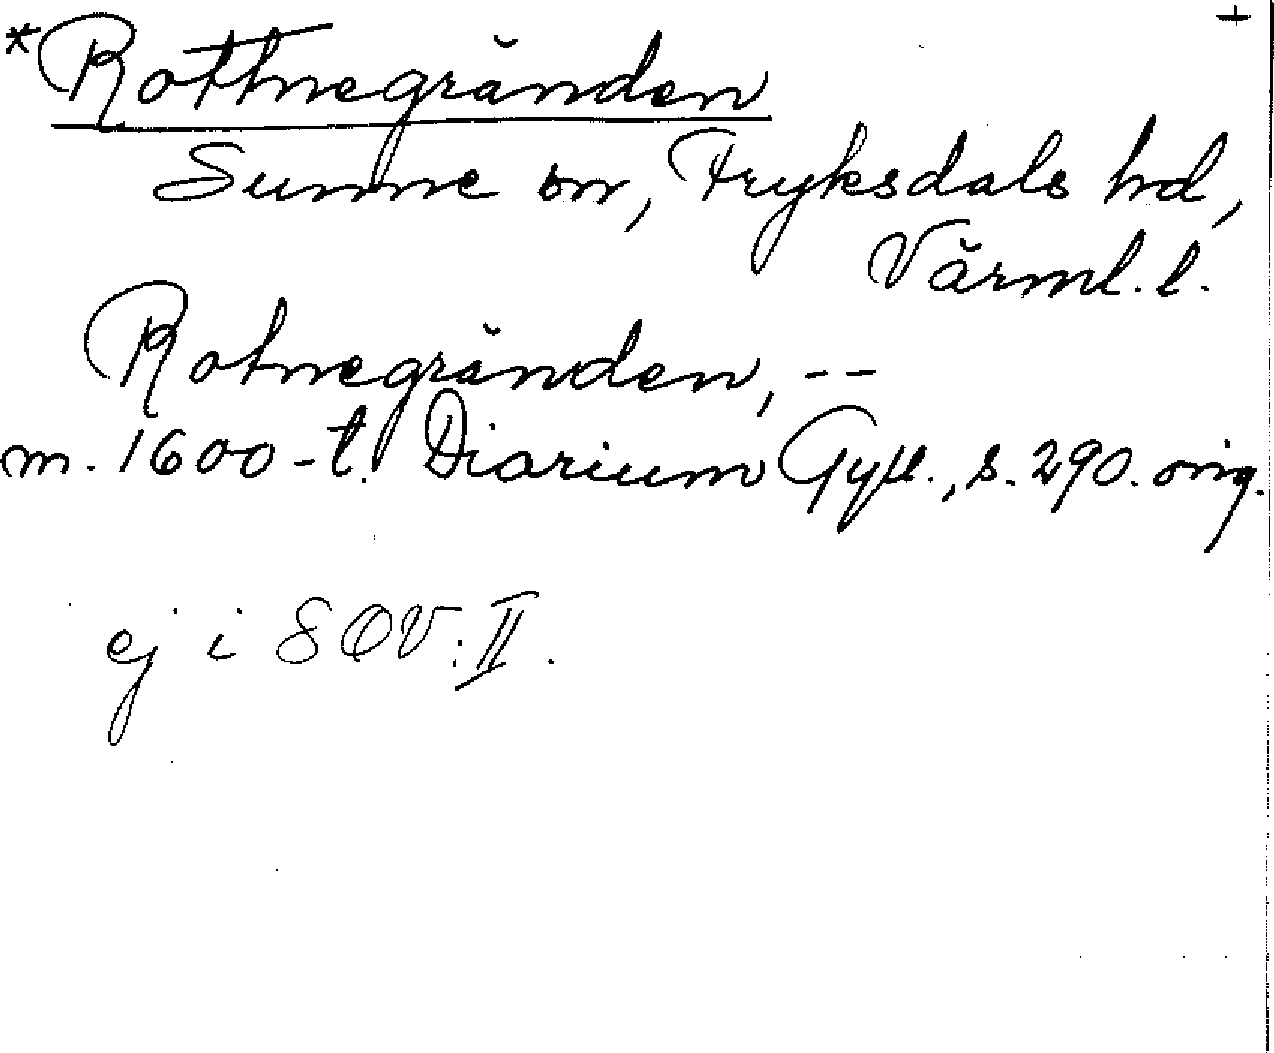 *Rottnegränden +
Sunne sn, Fryksdals hd,
Värml. l.
Rotnegränden, --
m. 1600-t. Diarium Gyll., s. 290. orig.
ej i SOV: II.